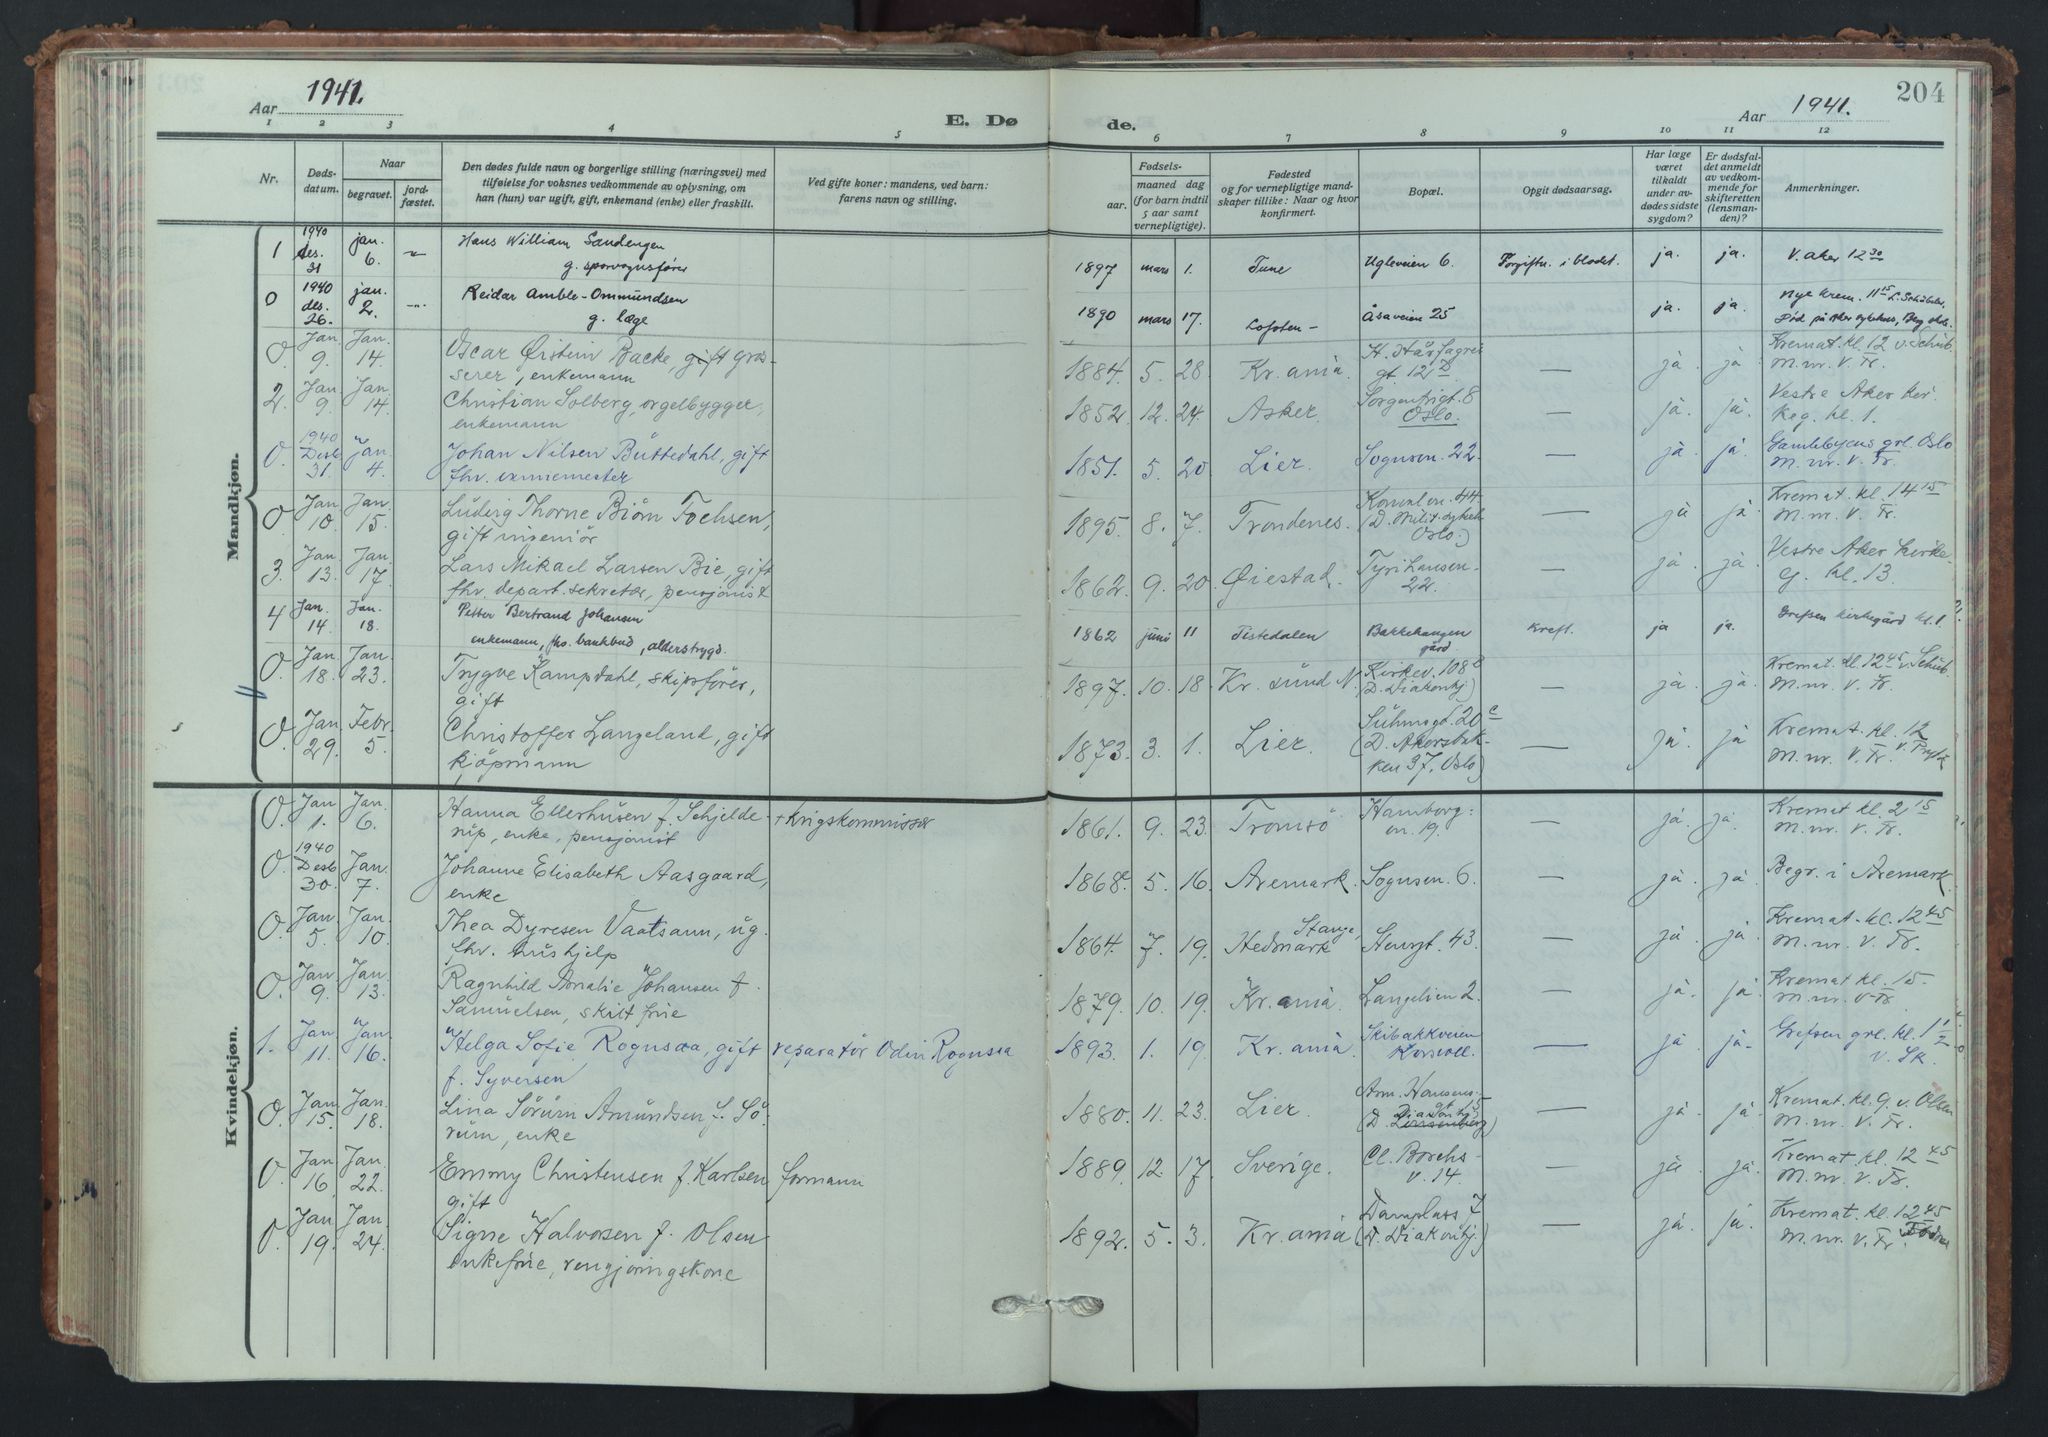 Aar 1941.
E. Dø
de.
Aar 1941.
204
1 2 3 4 5 6 7 8 9 10 11 12
Nr.
Døds-
datum.
Naar
begravet.
jord-
fæstet.
Den dødes fulde navn og borgerlige stilling (næringsvei) med
tilføielse for voksnes vedkommende av oplysning, om
han (hun) var ugift, gift, enkemand (enke) eller fraskilt.
Ved gifte koner: mandens, ved barn:
farens navn og stilling.
Fødsels-
aar.
maaned
dag
(for barn indtil
5 aar samt
vernepligtige).
Fødested
og for vernepligtige mand-
skaper tillike: Naar og hvor
konfirmert.
Bopæl.
Opgit dødsaarsag.
Har læge
været
tilkaldt
under av-
dødes sidste
sygdom?
Er dødsfal-
det anmeldt
av vedkom-
mende for
skifteretten
(lensman-
den)?
Anmerkninger.
Mandkjøn.
1 1940 des. 31 jan. 6. Hans William Sandengen
g. sporvognsfører 1897 mars 1. Tune Ugleveien 6. Forgiftn. i blodet. ja. ja. V. aker 12 30
0 1940 des. 26. jan. 2. Reidar Amble-Ommundsen
g. læge 1890 mars 17. Lofoten - Åsaveien 25 ja. ja. Nye krem. 11 15
Død på Aker sykehus,
0. Jan. 9. Jan. 14. Oscar Øistein Backe, gift gros-
serer, enkemann 1884. 5. 28. Kr.ania. H. Hårfagres
gt. 12 D — ja. ja. Kremat. kl. 12 v. Schüb.
M. nr. V. Fr.
2. Jan. 9. Jan. 14. Christian Solberg, orgelbygger,
enkemann 1852. 12. 24. Asker. Sorgenfrigt. 8
Oslo. — ja. ja. Vestre Aker kir.
keg. kl. 1.
0. 1940 Desb. 31. Jan. 4. Johan Nilsen Büttedahl, gift
fhv. 1851. 5. 20. Lier. Sognsv. 22. — ja. ja. Gamlebyens grl. Oslo
M. nr. V. Fr.
0. Jan. 10. Jan. 15. Ludvig Thorne Biørn Fochsen,
gift ingeniør 1895. 8. 7. Trondenes. 44
(D. Milit. sykeh.
Oslo.) — ja ja. Kremat. kl. 14 15
M. nr. V. Fr.
3. Jan. 13. Jan. 17. Lars Mikael Larsen Bie, gift
fhv. depart. sekretær, pensjonist 1862. 9. 20. Øiestad. Tyrihansen-
22. — ja. ja. Vestre Aker kirke
g. kl. 13.
4 Jan. 14. Jan. 18. Petter Bertrand Johansen
enkemann, fhv. bankbud, alderstrygd. 1862 juni 11 Tistedalen Bakkehaugen
gård Kreft. ja ja. Grefsen kirkegård kl. 1
0. Jan. 18. Jan. 23. Trygve Kampdahl, skipsfører,
gift 1897. 10. 18. Kr. sund N. Kirkev. 108 E
(D. Diakonhj) — ja. ja. Kremat. kl. 12 45 v. Schüb.
M. nr. V. Fr.
0. Jan. 29. Febr. 5. Christoffer Langeland, gift
kjøpmann 1873. 3. 1. Lier. Suhmsgt. 20 c
(D. Akersbak-
ken 37, Oslo) — ja. ja Kremat. kl. 12
M. nr. V. Fr.
Kvindekjøn.
0. Jan. 1. Jan. 6. Hanna Ellerhusen f. Schjelde-
rup, enke, pensjonist + Krigskommissær 1861. 9. 23. Tromsø Hamborg-
vn. 19. — ja. ja. Kremat kl. 2 15
M. nr. V. Fr.
0. 1940 Desb. 30. Jan. 7. Johanne Elisabeth Aasgaard,
enke 1868. 5. 16. Aremark. Sognsvn. 6. — ja. ja. Begr. i Aremark.
0. Jan. 5. Jan. 10. Thea Dyresen Vaatsann, ug.
fhv. hushjelp 1864. 7. 19. Stange,
Hedmark Stensgt. 43. — ja. ja. Kremat. kl. 12 45
M. nr. V. Fr.
0. Jan. 9. Jan. 13. Ragnhild Amalie Johansen f.
Samuelsen, skilt frue 1879. 10. 19. Kr.ania. Langelien 2. — ja. ja. Kremat kl. 15.
M. nr. V. Fr.
1. Jan. 11. Jan. 16. Helga Sofie Rognsaa, gift
f. Syversen reparatør Odin Rognsaa 1893. 1. 19. Kr.ania. Skibakkveien
Korsvoll. — ja. ja. Grefsen grl. kl. 1 1/2
v. Sk.
0. Jan. 15. Jan. 18. Lina Sørum Amundsen f. Sø-
rum, enke 1880. 11. 23. Lier. Arn. Hansens-
(D. Diakonhj) — ja. ja. Kremat. kl. 9 v. Olsen
M. nr. V. Fr.
0. Jan. 16. Jan. 22. Emmy Christensen f. Karlsen
gift formann 1889. 12. 17. Sverige. Cl. Borchs-
v. 14. — ja. ja. Kremat kl. 12 45
M. nr. V. Fr.
0. Jan. 19. Jan. 24. Signe Halvorsen f. Olsen
enkefrue, rengjøringskone 1892. 5. 3. Kr.ania Damplass 7
(D. Diakonhj.) — ja. ja. Kremat. kl. 12 45
M. nr. V. Fr.